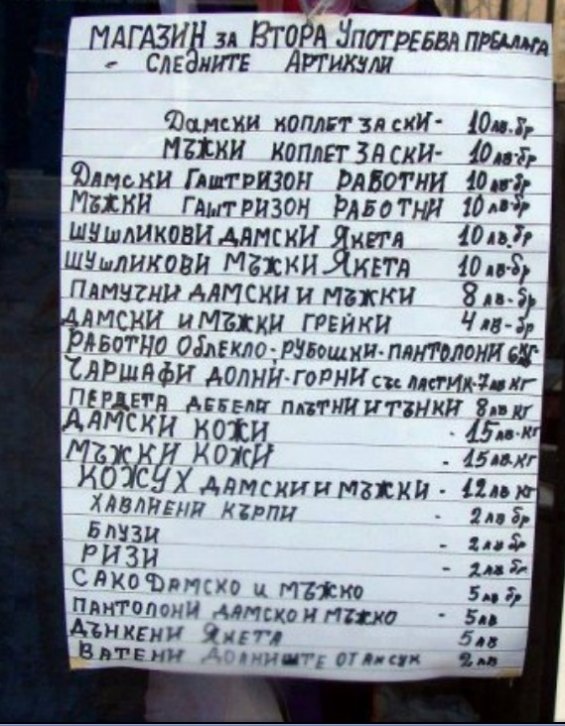 МАГАЗИН за ВТОРА УПОТРЕБВА ПРЕДЛАГА
- СЛЕДНИТЕ АРТИКУЛИ
ДАМСКИ КОПЛЕТ ЗА СКИ - 10 лв. бр
МЪЖКИ КОПЛЕТ ЗА СКИ - 10 лв-бр
ДАМСКИ ГАЩТРИЗОН РАБОТНИ 10 лв-бр
МЪЖКИ ГАЩТРИЗОН РАБОТНИ 10 лв-бр
ШУШЛИКОВИ ДАМСКИ ЯКЕТА 10 лв. бр
ШУШЛИКОВИ МЪЖКИ ЯКЕТА 10 лв-бр
ПАМУЧНИ ДАМСКИ И МЪЖКИ 8 лв-бр
ДАМСКИ И МЪЖКИ ГРЕЙКИ 4 лв-бр
РАБОТНО ОБЛЕКЛО-РУБОШКИ-ПАНТОЛОНИ КГ
ЧАРШАФИ ДОЛНИ-ГОРНИ със ЛАСТИК-7лв кг
ПЕРДЕТА ДЕБЕЛИ ПЛЪТНИ И ТЪНКИ 8 лв кг
ДАМСКИ КОЖИ - 15 лв-кг
МЪЖКИ КОЖИ - 15 лв.кг
КОЖУХ ДАМСКИ И МЪЖКИ - 12 лв кг
ХАВЛИЕНИ КЪРПИ - 2 лв бр
БЛУЗИ - 2 лв бр
РИЗИ - 2 лв бр
САКО ДАМСКО и МЪЖКО 5 лв бр
ПАНТОЛОНИ ДАМСКО И МЪЖКО - 5 лв
ДЪНКЕНИ ЯКЕТА 5 лв
ВАТЕНИ ДОЛНИЩЕ ОТ АНСУК 2 лв